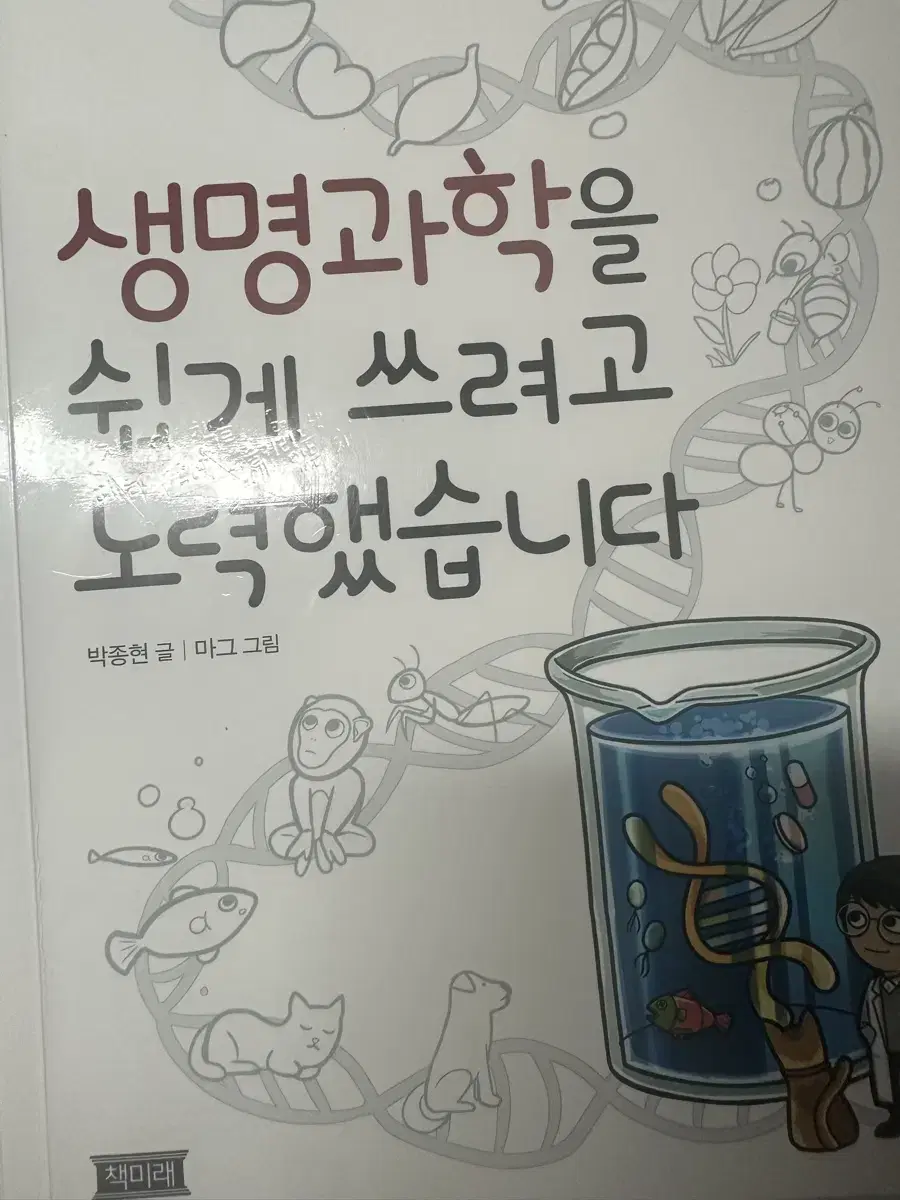 생명과학을
쉽게 쓰려고
노력했습니다
박종현 글 | 마그 그림
책미래